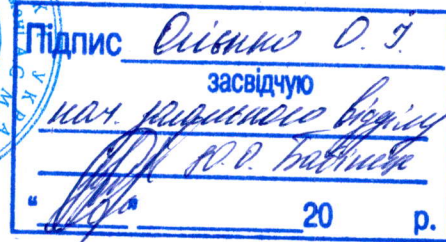 Підпис Олійник О. Г.
засвідчую
нач. загального відділу
Ю.О. Бабінець
“ ” 20 р.